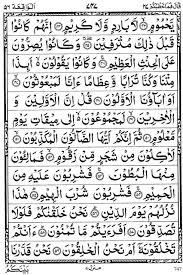 قال فما خطبكم ٢٧ الواقعة ٥٦
يَّحْمُوْمٍ لَّا بَارِدٍ وَّلَا كَرِيْمٍ اِنَّهُمْ كَانُوْا
قَبْلَ ذٰلِكَ مُتْرَفِيْنَ وَكَانُوْا يُصِرُّوْنَ
عَلَى الْحِنْثِ الْعَظِيْمِ وَكَانُوْا يَقُوْلُوْنَ اَئِذَا
مِتْنَا وَكُنَّا تُرَابًا وَّعِظَامًا ءَاِنَّا لَمَبْعُوْثُوْنَ
اَوَ اٰبَآؤُنَا الْاَوَّلُوْنَ قُلْ اِنَّ الْاَوَّلِيْنَ وَ
الْاٰخِرِيْنَ لَمَجْمُوْعُوْنَ اِلٰى مِيْقَاتِ يَوْمٍ
مَّعْلُوْمٍ ثُمَّ اِنَّكُمْ اَيُّهَا الضَّآلُّوْنَ الْمُكَذِّبُوْنَ
لَاٰكِلُوْنَ مِنْ شَجَرٍ مِّنْ زَقُّوْمٍ فَمَالِـُٔوْنَ
مِنْهَا الْبُطُوْنَ فَشٰرِبُوْنَ عَلَيْهِ مِنَ
الْحَمِيْمِ فَشٰرِبُوْنَ شُرْبَ الْهِيْمِ هٰذَا
نُزُلُهُمْ يَوْمَ الدِّيْنِ نَحْنُ خَلَقْنٰكُمْ فَلَوْلَا
تُصَدِّقُوْنَ اَفَرَءَيْتُمْ مَّا تُمْنُوْنَ ءَاَنْتُمْ
تَخْلُقُوْنَهٗٓ اَمْ نَحْنُ الْخٰلِقُوْنَ نَحْنُ قَدَّرْنَا
بينكم